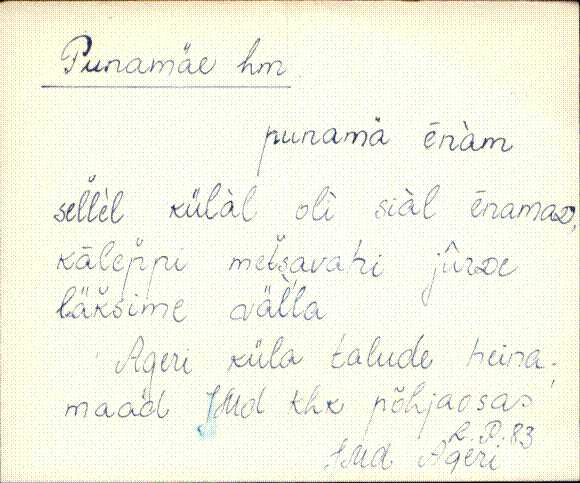 Punamäe hm
punamä ēnàm
sellèl külàl oli siàl ēnamaD,
kāleppi metsavahi jûrde
läksime välla
Ageri küla talude heina-
maad JMd khk põhjaosas
L.P. 83
JMd Ageri